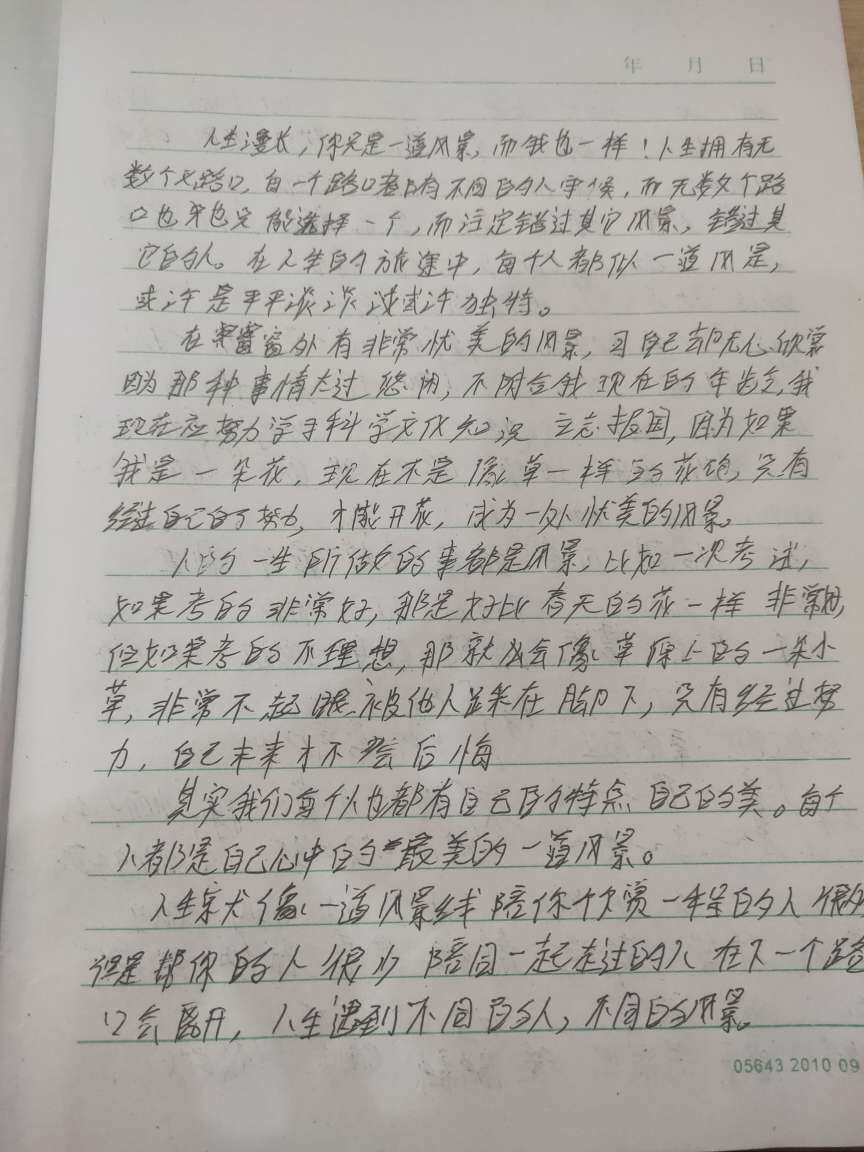 年 月 日
人生漫长，你只是一道风景，而我也一样！人生拥有无
数个路口，每一个路口都有不同的人守候，而无数个路
口也只能选择一个，而注定错过其它风景，错过其
它的人。在人生的旅途中，每个人都似一道风景，
或许是平平淡淡或许独特。
在窗外有非常优美的风景，可自己却无心欣赏
因为那种事情太过悠闲，不附合我现在的年龄，我
现在应努力学习科学文化知识 立志报国，因为如果
我是一朵花，现在不是像草一样的花苞，只有
经过自己的努力，才能开花，成为一处优美的风景。
人的一生所做的事都是风景，比如一次考试，
如果考的非常好，那是好比春天的花一样 非常
但如果考的不理想，那就会像草原上的一朵小
草，非常不起眼被他人踩在脚下，只有经过努
力，自己未来才不会后悔
其实我们每个人也都有自己的特点 自己的美。每个
人都是自己心中的最美的一道风景。
人生就像一道风景线 陪你欣赏一程的人很多
但是帮你的人很少 陪同一起走过的人 在下一个路
口会离开，人生遇到不同的人，不同的风景。
05643 2010 09